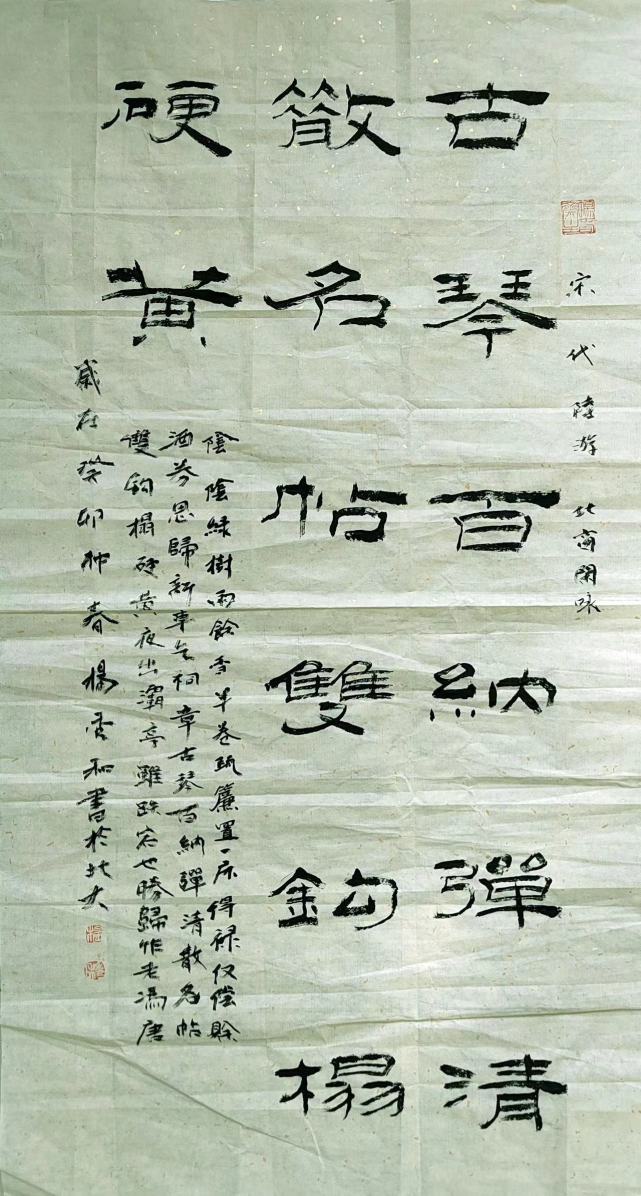 宋代陸游北窗閒咏
古琴百納彈清
散名帖雙鈎榻
硬黄
陰陰緑樹雨餘香半卷疏簾置一床得禄仅偿賒
酒券思歸新草乞祠章古琴百納彈清散名帖
雙鈎榻硬黄夜出灞亭雖跌宕也勝歸作老馮唐
歲在癸卯仲春楊和書於北大